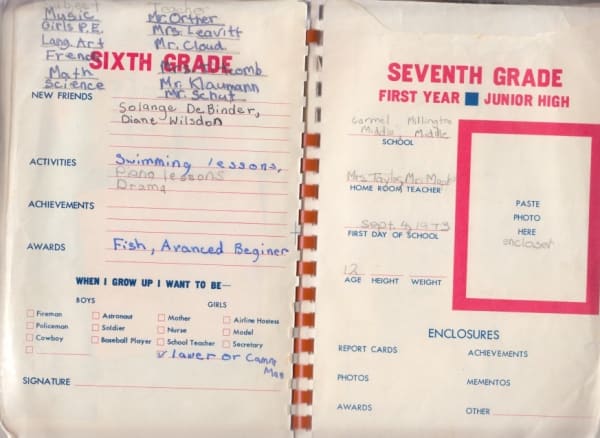 Subject Teacher
Music Mr. Orther
Girls P.E. Mrs. Leavitt
Lang. Art Mr. Cloud
French
SIXTH GRADE
Math Mr. Klaumann
Science Mr. Schut
NEW FRIENDS Solange De Binder,
Diane Wilsdon
ACTIVITIES Swimming lessons,
Piano lessons
Drama
ACHIEVEMENTS
AWARDS Fish, Avanced Beginer
WHEN I GROW UP I WANT TO BE—
BOYS GIRLS
Fireman Astronaut Mother Airline Hostess
Policeman Soldier Nurse Model
Cowboy Baseball Player School Teacher Secretary
✓ lawer or Camra
Man
SIGNATURE
SEVENTH GRADE
FIRST YEAR JUNIOR HIGH
Carmel Millington
Middle, Middle
SCHOOL
Mrs. Taylor, Mr.
HOME ROOM TEACHER
Sept. 4, 1973
FIRST DAY OF SCHOOL
12
AGE HEIGHT WEIGHT
PASTE
PHOTO
HERE
encloser
ENCLOSURES
REPORT CARDS ACHIEVEMENTS
PHOTOS MEMENTOS
AWARDS OTHER